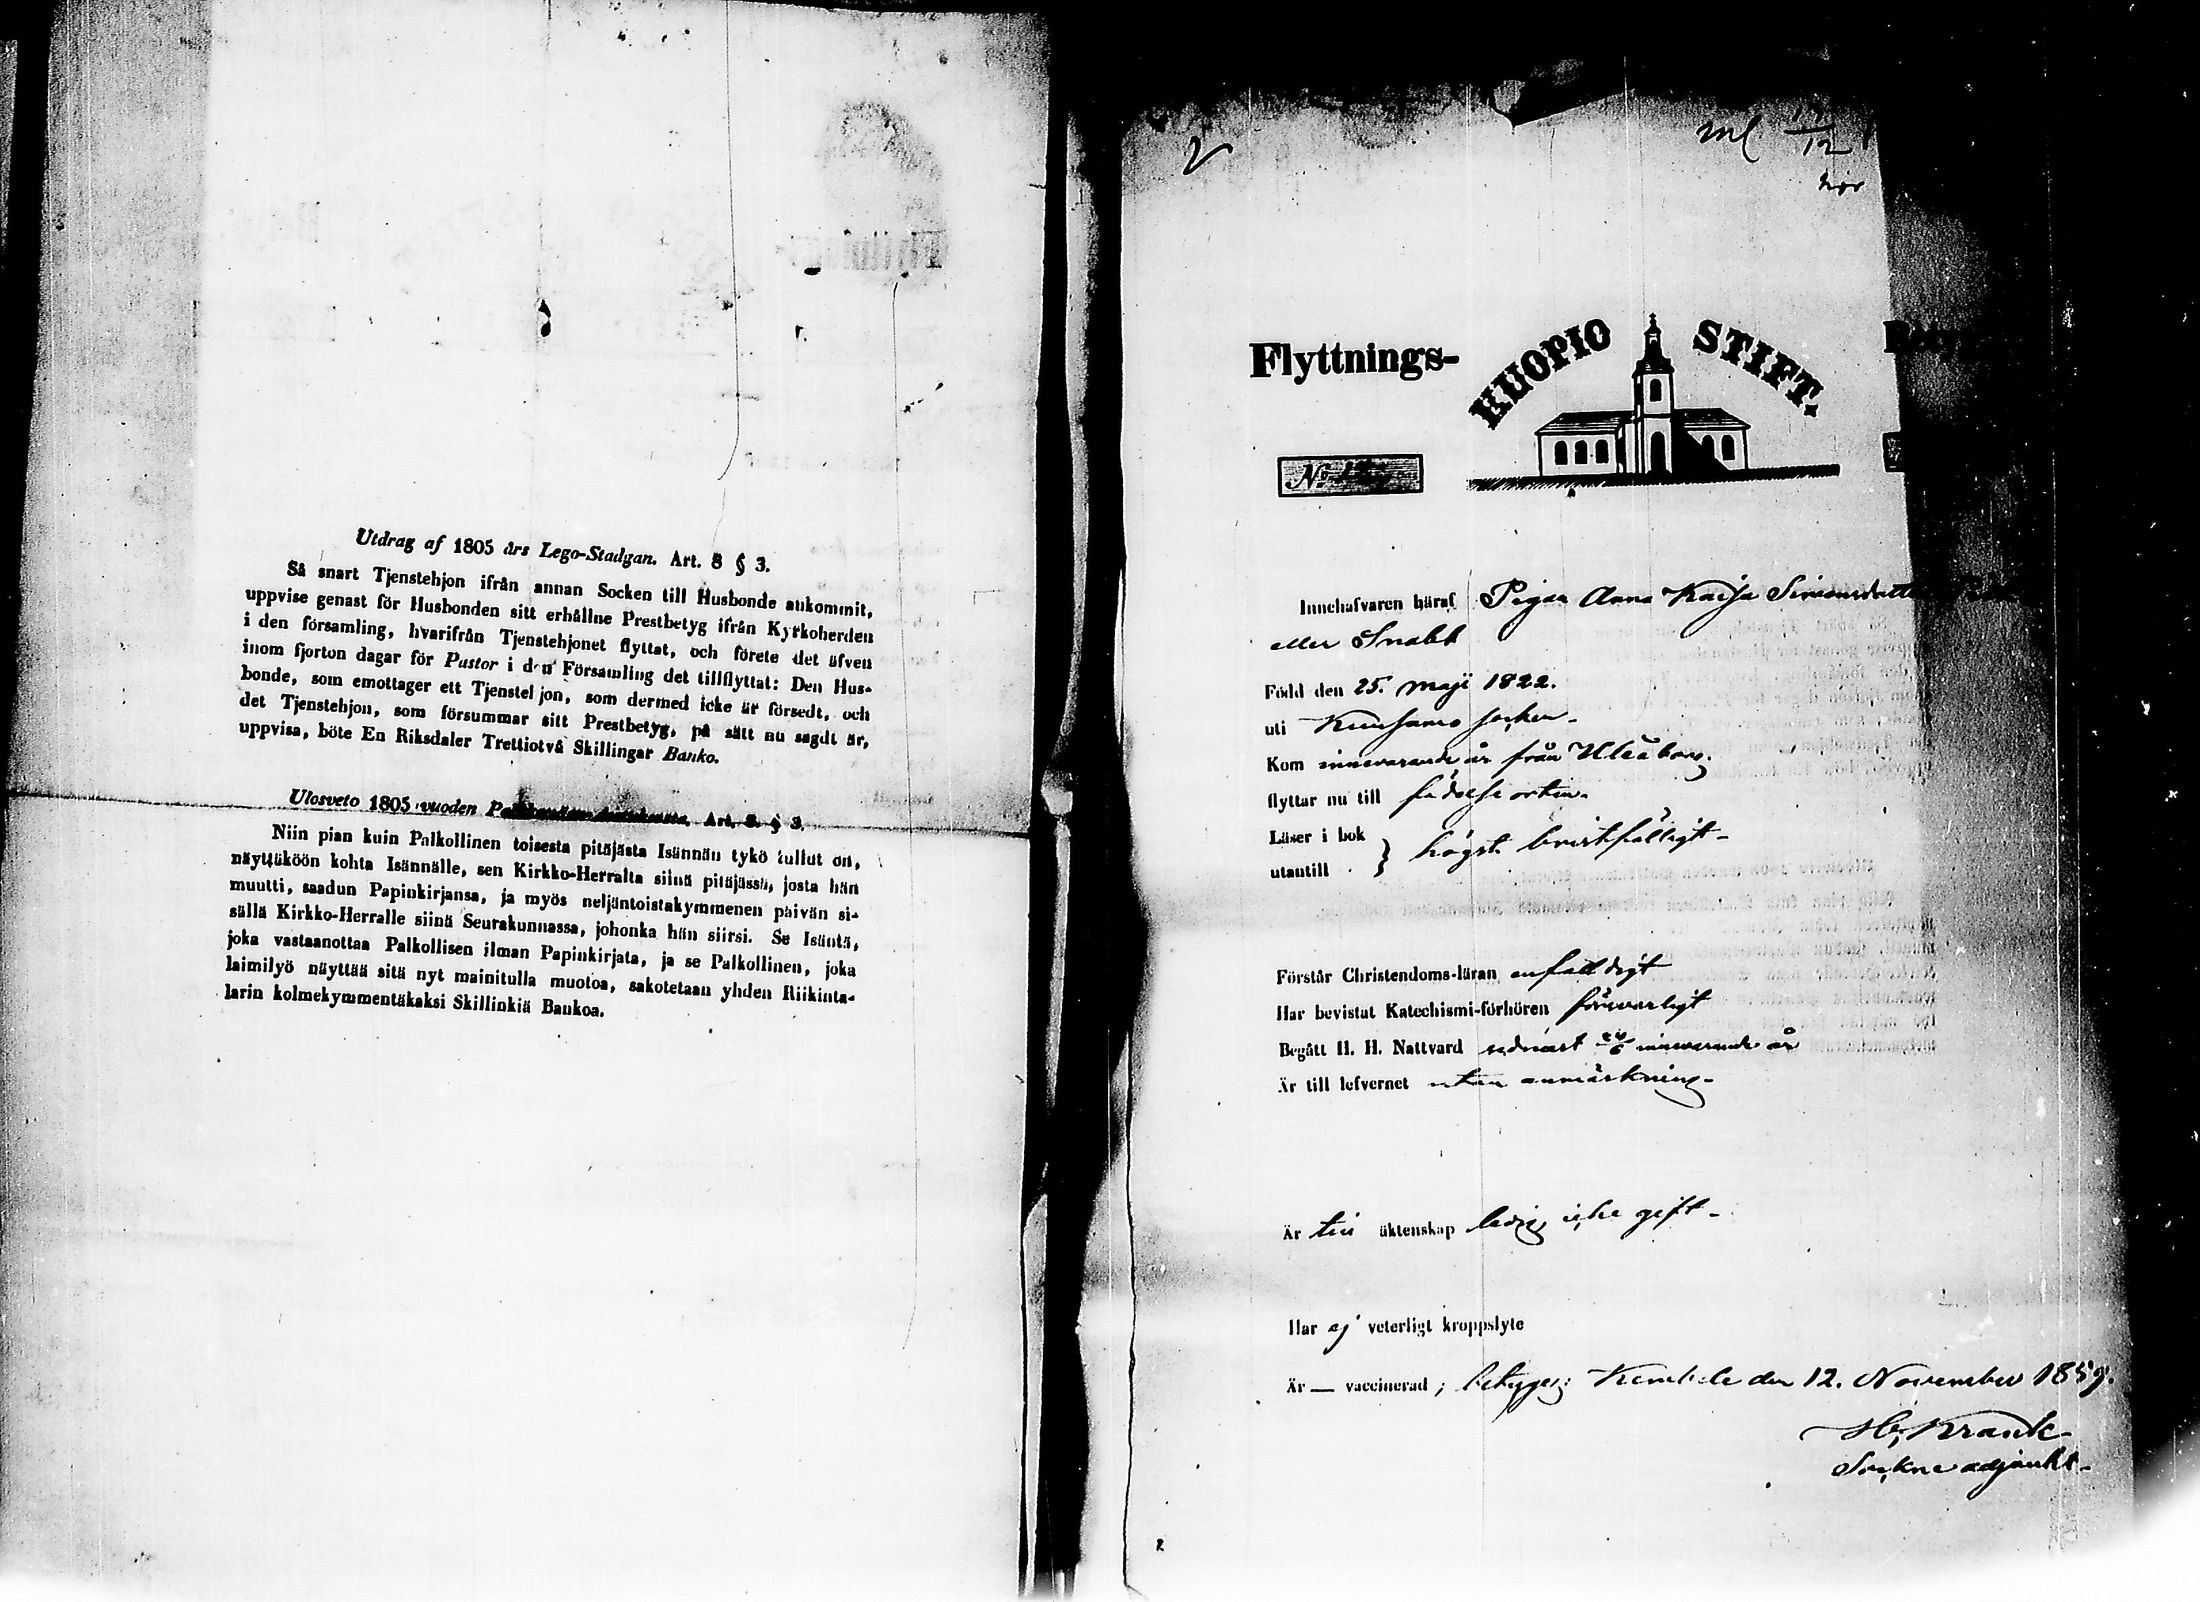 Utdrag af 1805 års Lego-Stadgan. Art. 8 § 3.
Så snart Tjenstehjon ifrån annan Socken till Husbonde ankommit,
uppvise genast för Husbonden sitt erhållne Prestbetyg ifrån Kyrkoherden
i den församling, hvarifrån Tjenstehjonet flyttat, och förete det äfven
inom fjorton dagar för Pastor i den Församling det tillflyttat: Den Hus-
bonde, som emottager ett Tjenstehjon, som dermed icke är försedt, och
det Tjenstehjon, som försummar sitt Prestbetyg, på sätt nu sagdt är,
uppvisa, böte En Riksdaler Trettiotvå Skillingar Banko.
Ulosveto 1805 vuoden Art. 8. § 3.
Niin pian kuin Palkollinen toisesta pitäjästa Isännän tykö tullut on,
näyttäköön kohta Isännälle, sen Kirkko-Herralta siinä pitäjässä, josta hän
muutti, saadun Papinkirjansa, ja myös neljäntoistakymmenen päivän si-
sällä Kirkko-Herralle siinä Seurakunnassa, johonka hän siirsi. Se Isäntä,
joka vastaanottaa Palkollisen ilman Papinkirjata, ja se Palkollinen, joka
laimilyö näyttää sitä nyt mainitulla muotoa, sakotetaan yhden Riikinta-
larin kolmekymmentäkaksi Skillinkiä Bankoa.
Flyttnings-
KUOPIO STIFT.
No
Innehafvaren häraf Pigan Anna Kaisa Simonsdotter
eller Snabb
Född den 25. Maji 1822.
uti Kuusamo socken.
Kom innevarande år från Uleåborg.
flyttar nu till födelse orten.
Läser i bok
utantill } högst bristfälligt.
Förstår Christendoms-läran enfaldigt
Har bevistat Katechismi-förhören försvarligt
Begått H. H. Nattvard sednast innevarande år
Är till lefvernet utan anmärkning.
Är till äktenskap ledig, icke gift.
Har ej veterligt kroppslyte
Är — vaccinerad; betygar; Kembele den 12. November 1859.
Krank
Sockne adjunkt.